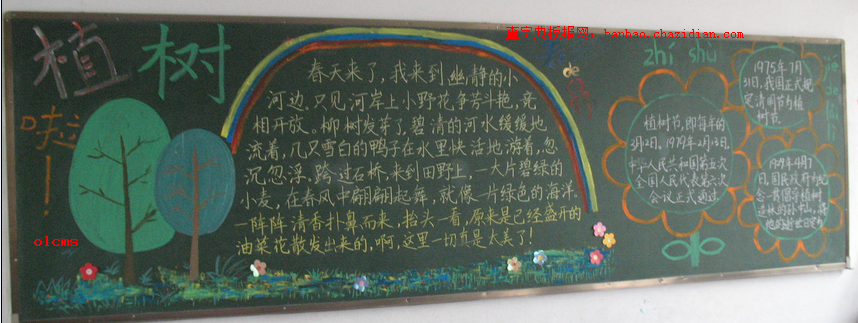 植树
啦!
查字典板报网: banbao.chazidian.com
春天来了,我来到幽静的小
河边.只见河岸上小野花争芳斗艳,竞
相开放。柳树发芽了,碧清的河水缓缓地
流着,几只雪白的鸭子在水里快活地游着,忽
沉忽浮,跨过石桥,来到田野上,一大片碧绿的
小麦,在春风中翩翩起舞,就像一片绿色的海洋.
一阵阵清香扑鼻而来,抬头一看,原来是已经盛开的
油菜花散发出来的,啊,这里一切真是太美了!
de
zhí shù
植树节,即每年的
3月12日,1979年2月23日,
中华人民共和国第五次
全国人民代表第六次
会议正式通过
1975年7月
31日,我国正式规
定清明节为植
树节.
olcms